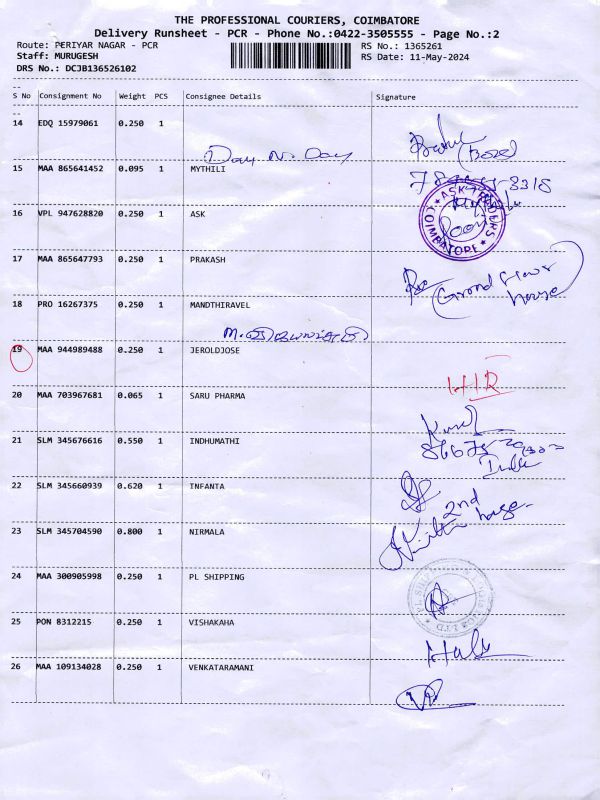 THE PROFESSIONAL COURIERS, COIMBATORE
Delivery Runsheet - PCR - Phone No.:0422-3505555 - Page No.:2
Route: PERIYAR NAGAR - PCR RS No.: 1365261
Staff: MURUGESH RS Date: 11-May-2024
DRS No.: DCJB136526102
--
S No Consignment No Weight PCS Consignee Details Signature
--
14 EDQ 15979061 0.250 1
Day N. Day
15 MAA 865641452 0.095 1 MYTHILI
16 VPL 947628820 0.250 1 ASK
ASK TRADERS
COIMBATORE
17 MAA 865647793 0.250 1 PRAKASH
Grond floor
house
18 PRO 16267375 0.250 1 MANDTHIRAVEL
19 MAA 944989488 0.250 1 JEROLDJOSE
20 MAA 703967681 0.065 1 SARU PHARMA
21 SLM 345676616 0.550 1 INDHUMATHI
22 SLM 345660939 0.620 1 INFANTA
2nd
house
23 SLM 345704590 0.800 1 NIRMALA
24 MAA 300905998 0.250 1 PL SHIPPING
25 PON 8312215 0.250 1 VISHAKAHA
26 MAA 109134028 0.250 1 VENKATARAMANI